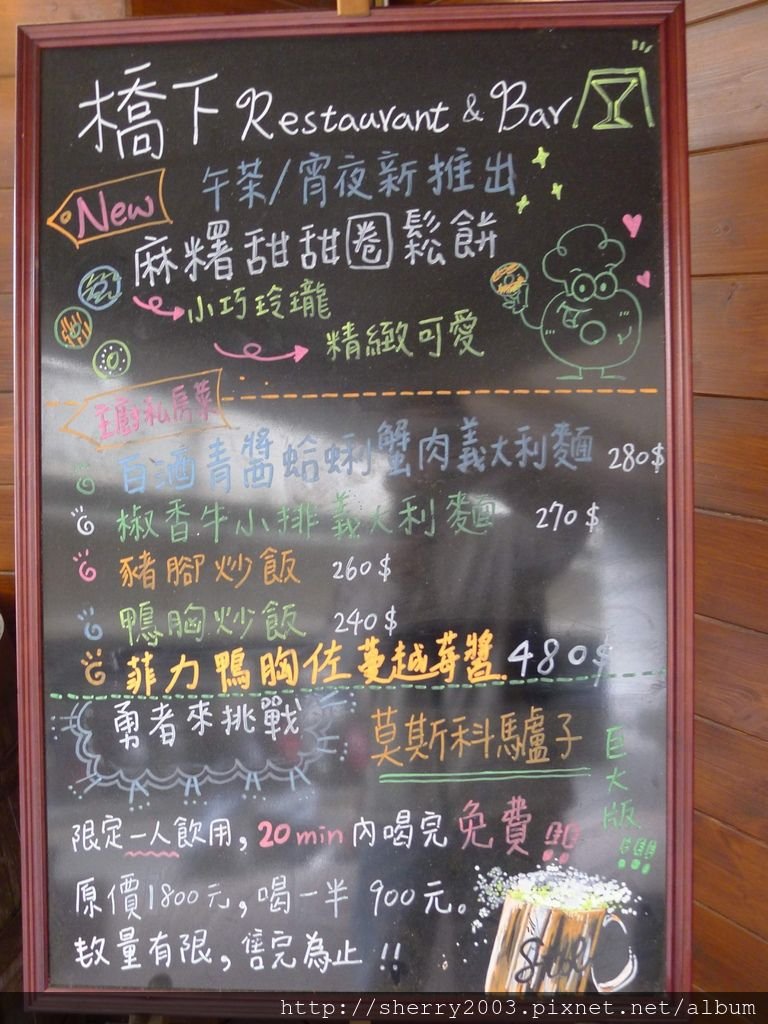 橋下 Restaurant & Bar
New
午茶/宵夜新推出
麻糬甜甜圈鬆餅
小巧玲瓏
精緻可愛
主廚私房菜
白酒青醬蛤蜊蟹肉義大利麵 280$
椒香牛小排義大利麵 270$
豬腳炒飯 260$
鴨胸炒飯 240$
菲力鴨胸佐蔓越莓醬. 480$
勇者來挑戰
莫斯科驢子
巨大版!!!
限定一人飲用, 20min內喝完 免費!!!
原價1800元, 喝一半 900元。
数量有限, 售完為止!!
http://sherry2003.pixnet.net/album